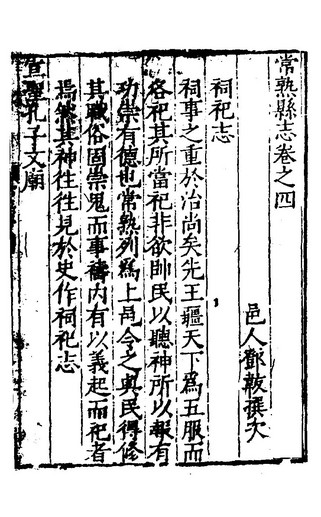 常熟縣志卷之四
邑人鄧韍撰次
祠祀志
祠事之重於治尚矣先王疆天下爲五服而
各祀其所當祀非欲帥民以聽神所以報有
功崇有德也常熟列爲上邑令之與民得修
其職俗固崇鬼而事禱内有以義起而祀者
焉然其神往往見於史作祠祀志
宣聖孔子文廟